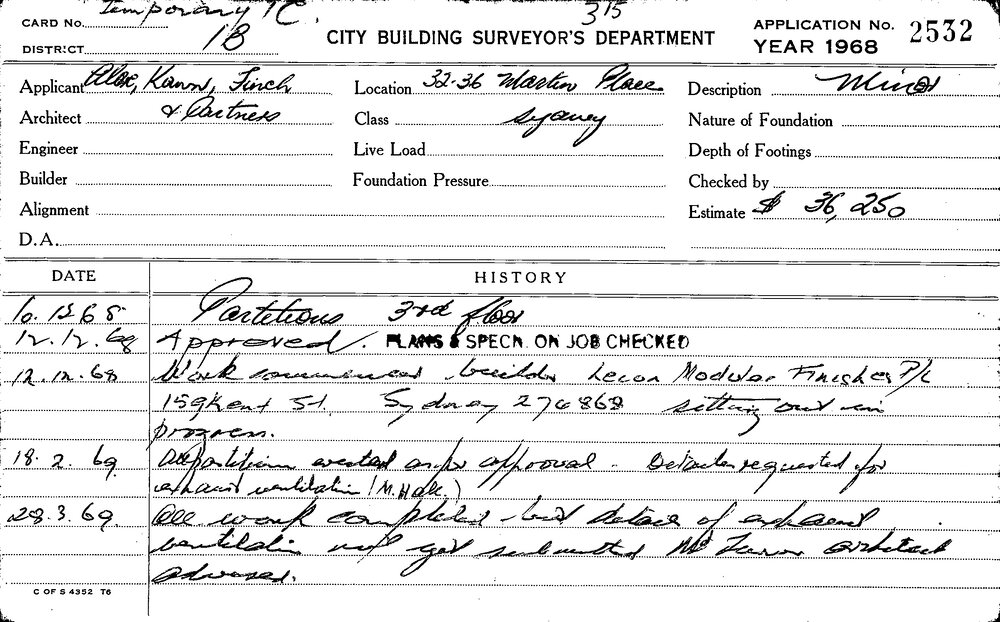 Temporary C. 315
CARD No.
DISTRICT 1B
CITY BUILDING SURVEYOR'S DEPARTMENT
APPLICATION No. 2532
YEAR 1968
Applicant Finch
Location 32-36 Martin Place
Description Minor
Architect & Partners
Class Sydney
Nature of Foundation
Engineer
Live Load
Depth of Footings
Builder
Foundation Pressure
Checked by
Alignment
Estimate $ 36,250
D.A.
DATE HISTORY
10.12 68 Partitions 3rd floor
12.12.68 Approved. PLANS & SPECN. ON JOB CHECKED
12.12.68 Work commenced builder Modular P/L
159 Kent St. Sydney setting out in
progress.
18.2.69 All partitions erected as per approval. Details requested for
exhaust ventilation (M. Hall.)
28.3.69. All work completed but details of exhaust
ventilation not yet submitted Mr architect
advised.
C OF S 4352 T6